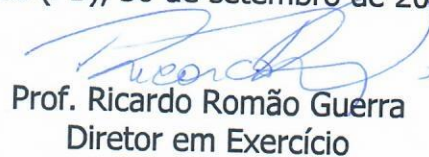 30 de setembro de 20
Ricardo
Prof. Ricardo Romão Guerra
Diretor em Exercício